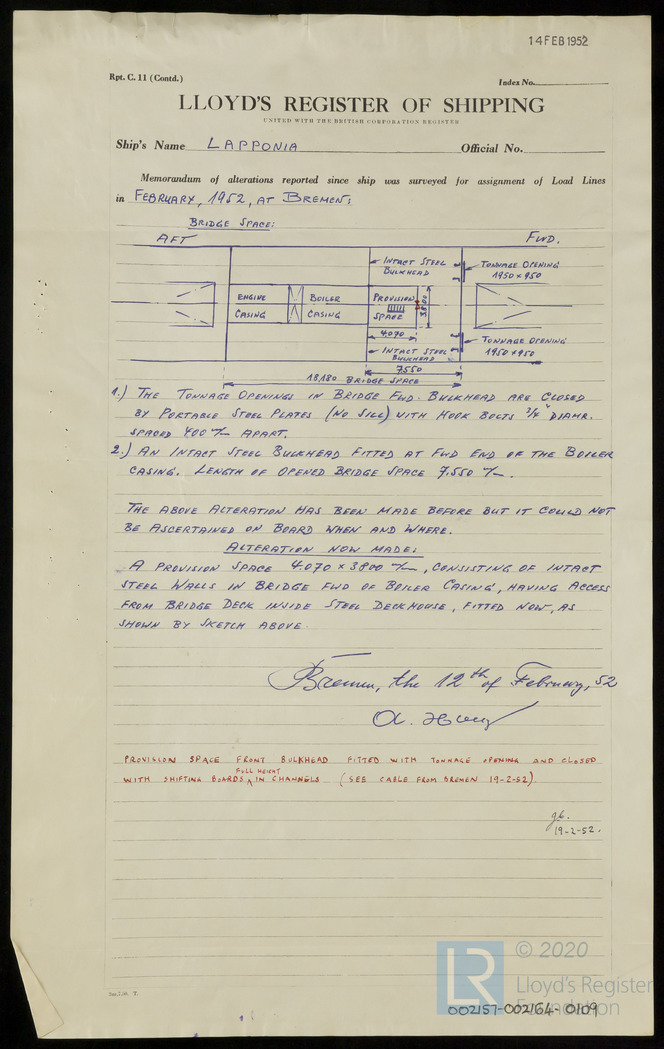 14 FEB 1952
Rpt. C. 11 (Contd.)
Index No.
LLOYD'S REGISTER OF SHIPPING
UNITED WITH THE BRITISH CORPORATION REGISTER
Ship's Name LAPPONIA Official No.
Memorandum of alterations reported since ship was surveyed for assignment of Load Lines
in FEBRUARY, 1952, AT BREMEN;
BRIDGE SPACE:
AFT FWD.
INTACT STEEL BULKHEAD
TONNAGE OPENING 1950 x 950
ENGINE CASING
BOILER CASING
PROVISION SPACE
3800
4.070
INTACT STEEL BULKHEAD
TONNAGE OPENING 1950 x 950
7.550
18,180 BRIDGE SPACE
1.) THE TONNAGE OPENINGS IN BRIDGE FWD. BULKHEAD ARE CLOSED
BY PORTABLE STEEL PLATES (NO SILL) WITH HOOK BOLTS 3/4" DIAMR.
SPACED 400 m/m APART.
2.) AN INTACT STEEL BULKHEAD FITTED AT FWD END OF THE BOILER
CASING. LENGTH OF OPENED BRIDGE SPACE 7.550 m/m.
THE ABOVE ALTERATION HAS BEEN MADE BEFORE BUT IT COULD NOT
BE ASCERTAINED ON BOARD WHEN AND WHERE.
ALTERATION NOW MADE:
A PROVISION SPACE 4.070 x 3800 m/m, CONSISTING OF INTACT
STEEL WALLS IN BRIDGE FWD OF BOILER CASING, HAVING ACCESS
FROM BRIDGE DECK INSIDE STEEL DECKHOUSE, FITTED NOW, AS
SHOWN BY SKETCH ABOVE.
Bremen, the 12th of February, 52
PROVISION SPACE FRONT BULKHEAD FITTED WITH TONNAGE OPENING AND CLOSED
FULL HEIGHT
WITH SHIFTING BOARDS IN CHANNELS (SEE CABLE FROM BREMEN 19-2-52).
19-2-52.
© 2020
LR
Lloyd's Register
Foundation
002157-002164-0109